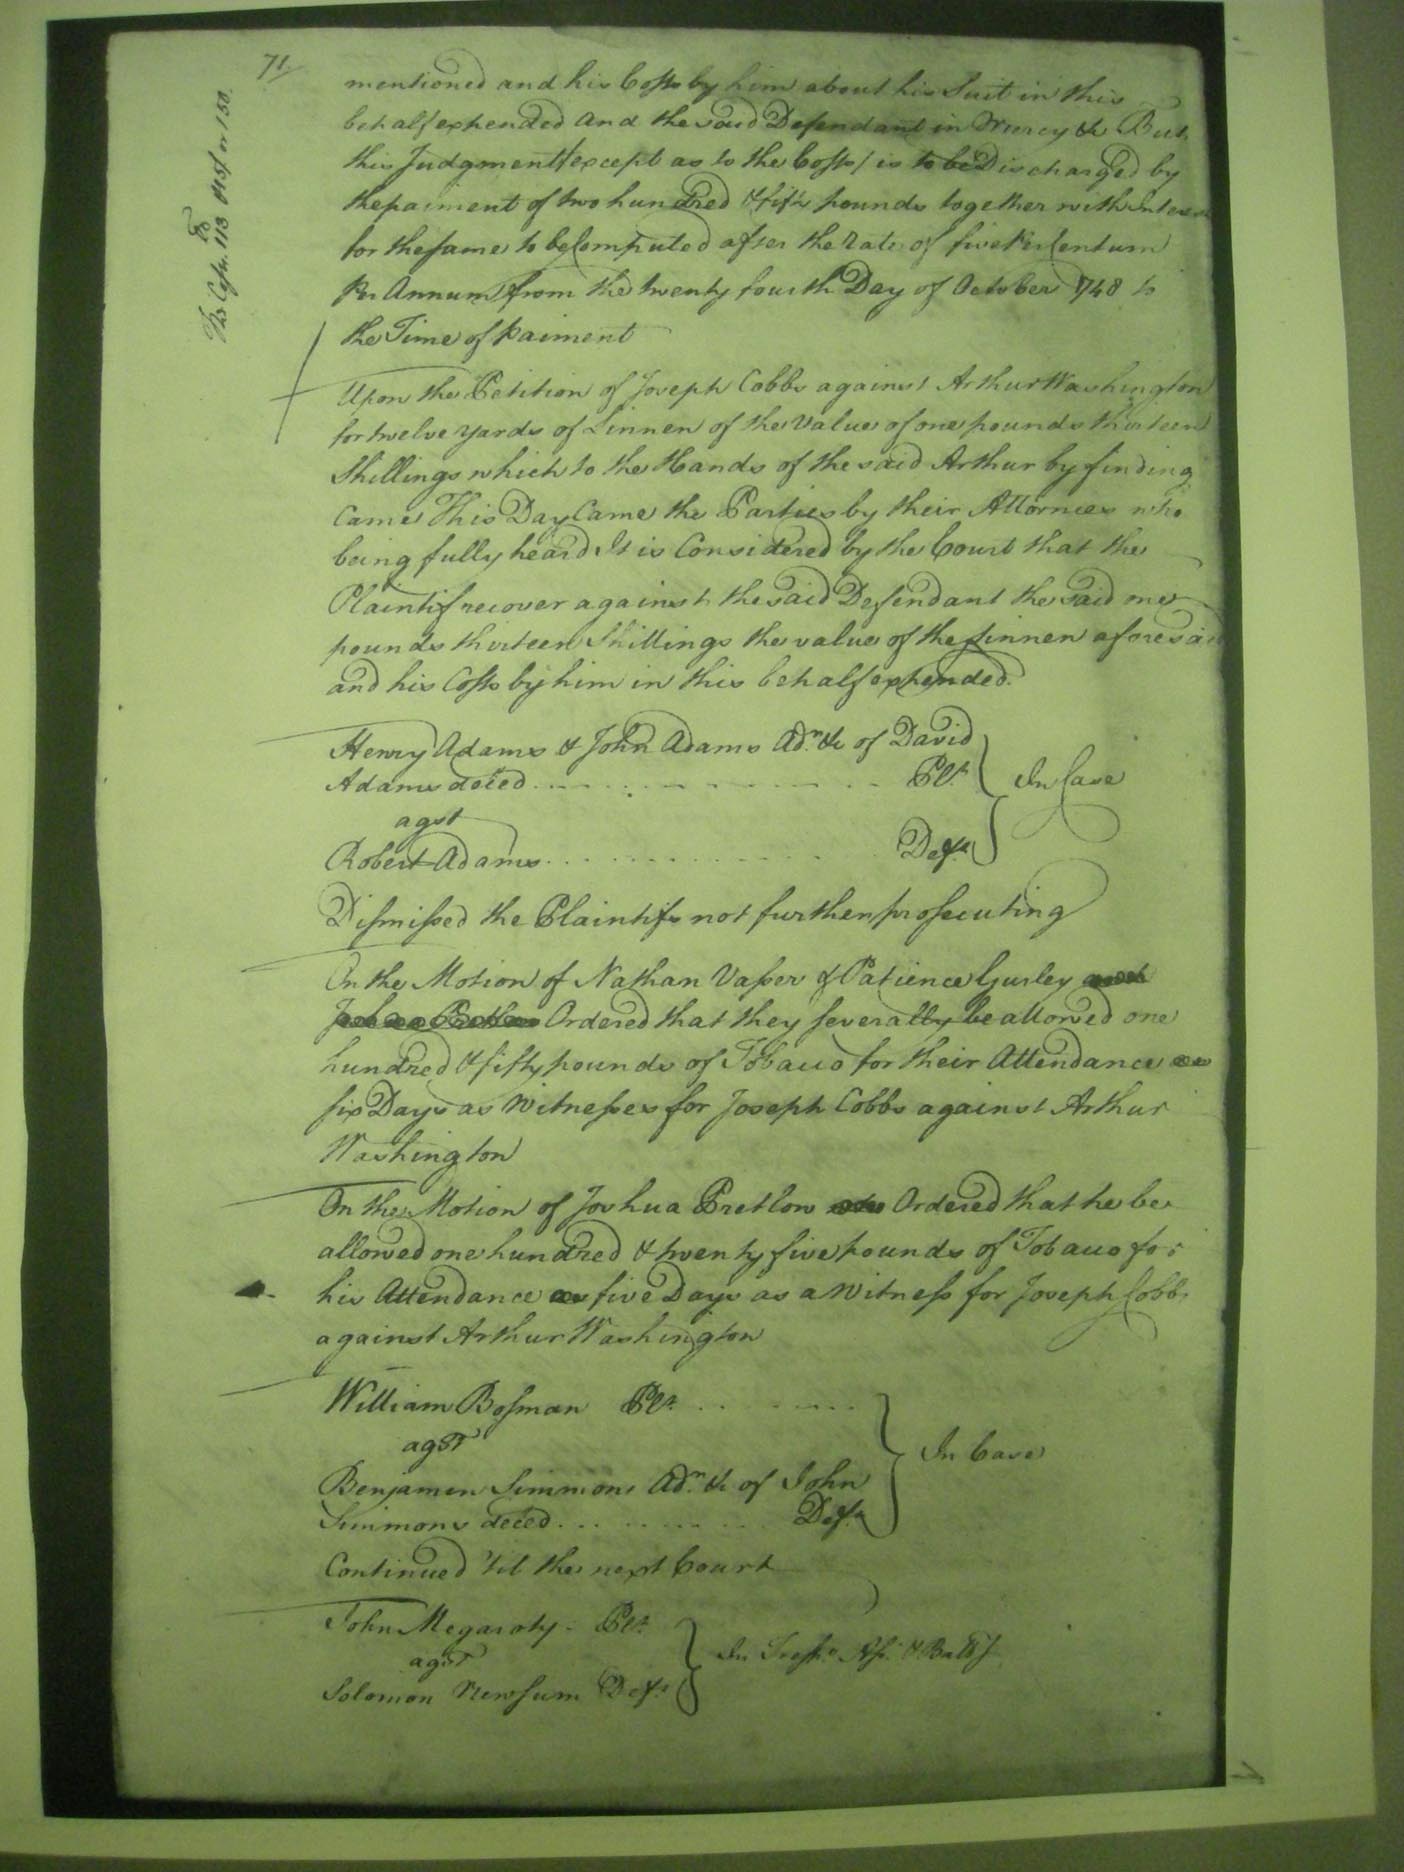 71
mentioned and his Costs by him about his Suit in this
behalf expended And the said Defendant in Mercy &c But
this Judgment (except as to the Costs) is to be Discharged by
the paiment of two hundred & fifty pounds together with Interest
for the same to be Computed after the Rate of five Per Centum
Per Annum from the twenty fourth Day of October 1748 to
the Time of paiment
Upon the Petition of Joseph Cobbs against Arthur Washington
for twelve yards of Linnen of the Value of one pounds thirteen
Shillings which to the Hands of the said Arthur by finding
Came This Day Came the Parties by their Attornies who
being fully heard It is Considered by the Court that the
Plaintif recover against the said Defendant the said one
pounds thirteen Shillings the value of the Linnen aforesaid
and his Costs by him in this behalf expended.
Henry Adams & John Adams Adm. &c of David
Adams deced. Plt. In Case
agst
Robert Adams Deft.
Dismissed the Plaintifs not further prosecuting
On the Motion of Nathan Vasser & Patience Gurley
Ordered that they severally be allowed one
hundred & fifty pounds of Tobacco for their Attendance
six Days as Witnesses for Joseph Cobbs against Arthur
Washington
On the Motion of Joshua Pretlow Ordered that he be
allowed one hundred & twenty five pounds of Tobacco for
his Attendance five Days as a Witness for Joseph Cobbs
against Arthur Washington
William Bosman Plt.
agst In Case
Benjamin Simmons Adm. &c of John
Simmons deced. Deft.
Continued 'til the next Court
John Megaroty Plt.
agst In Tresp. Ass. & Batt.
Solomon Newsum Deft.